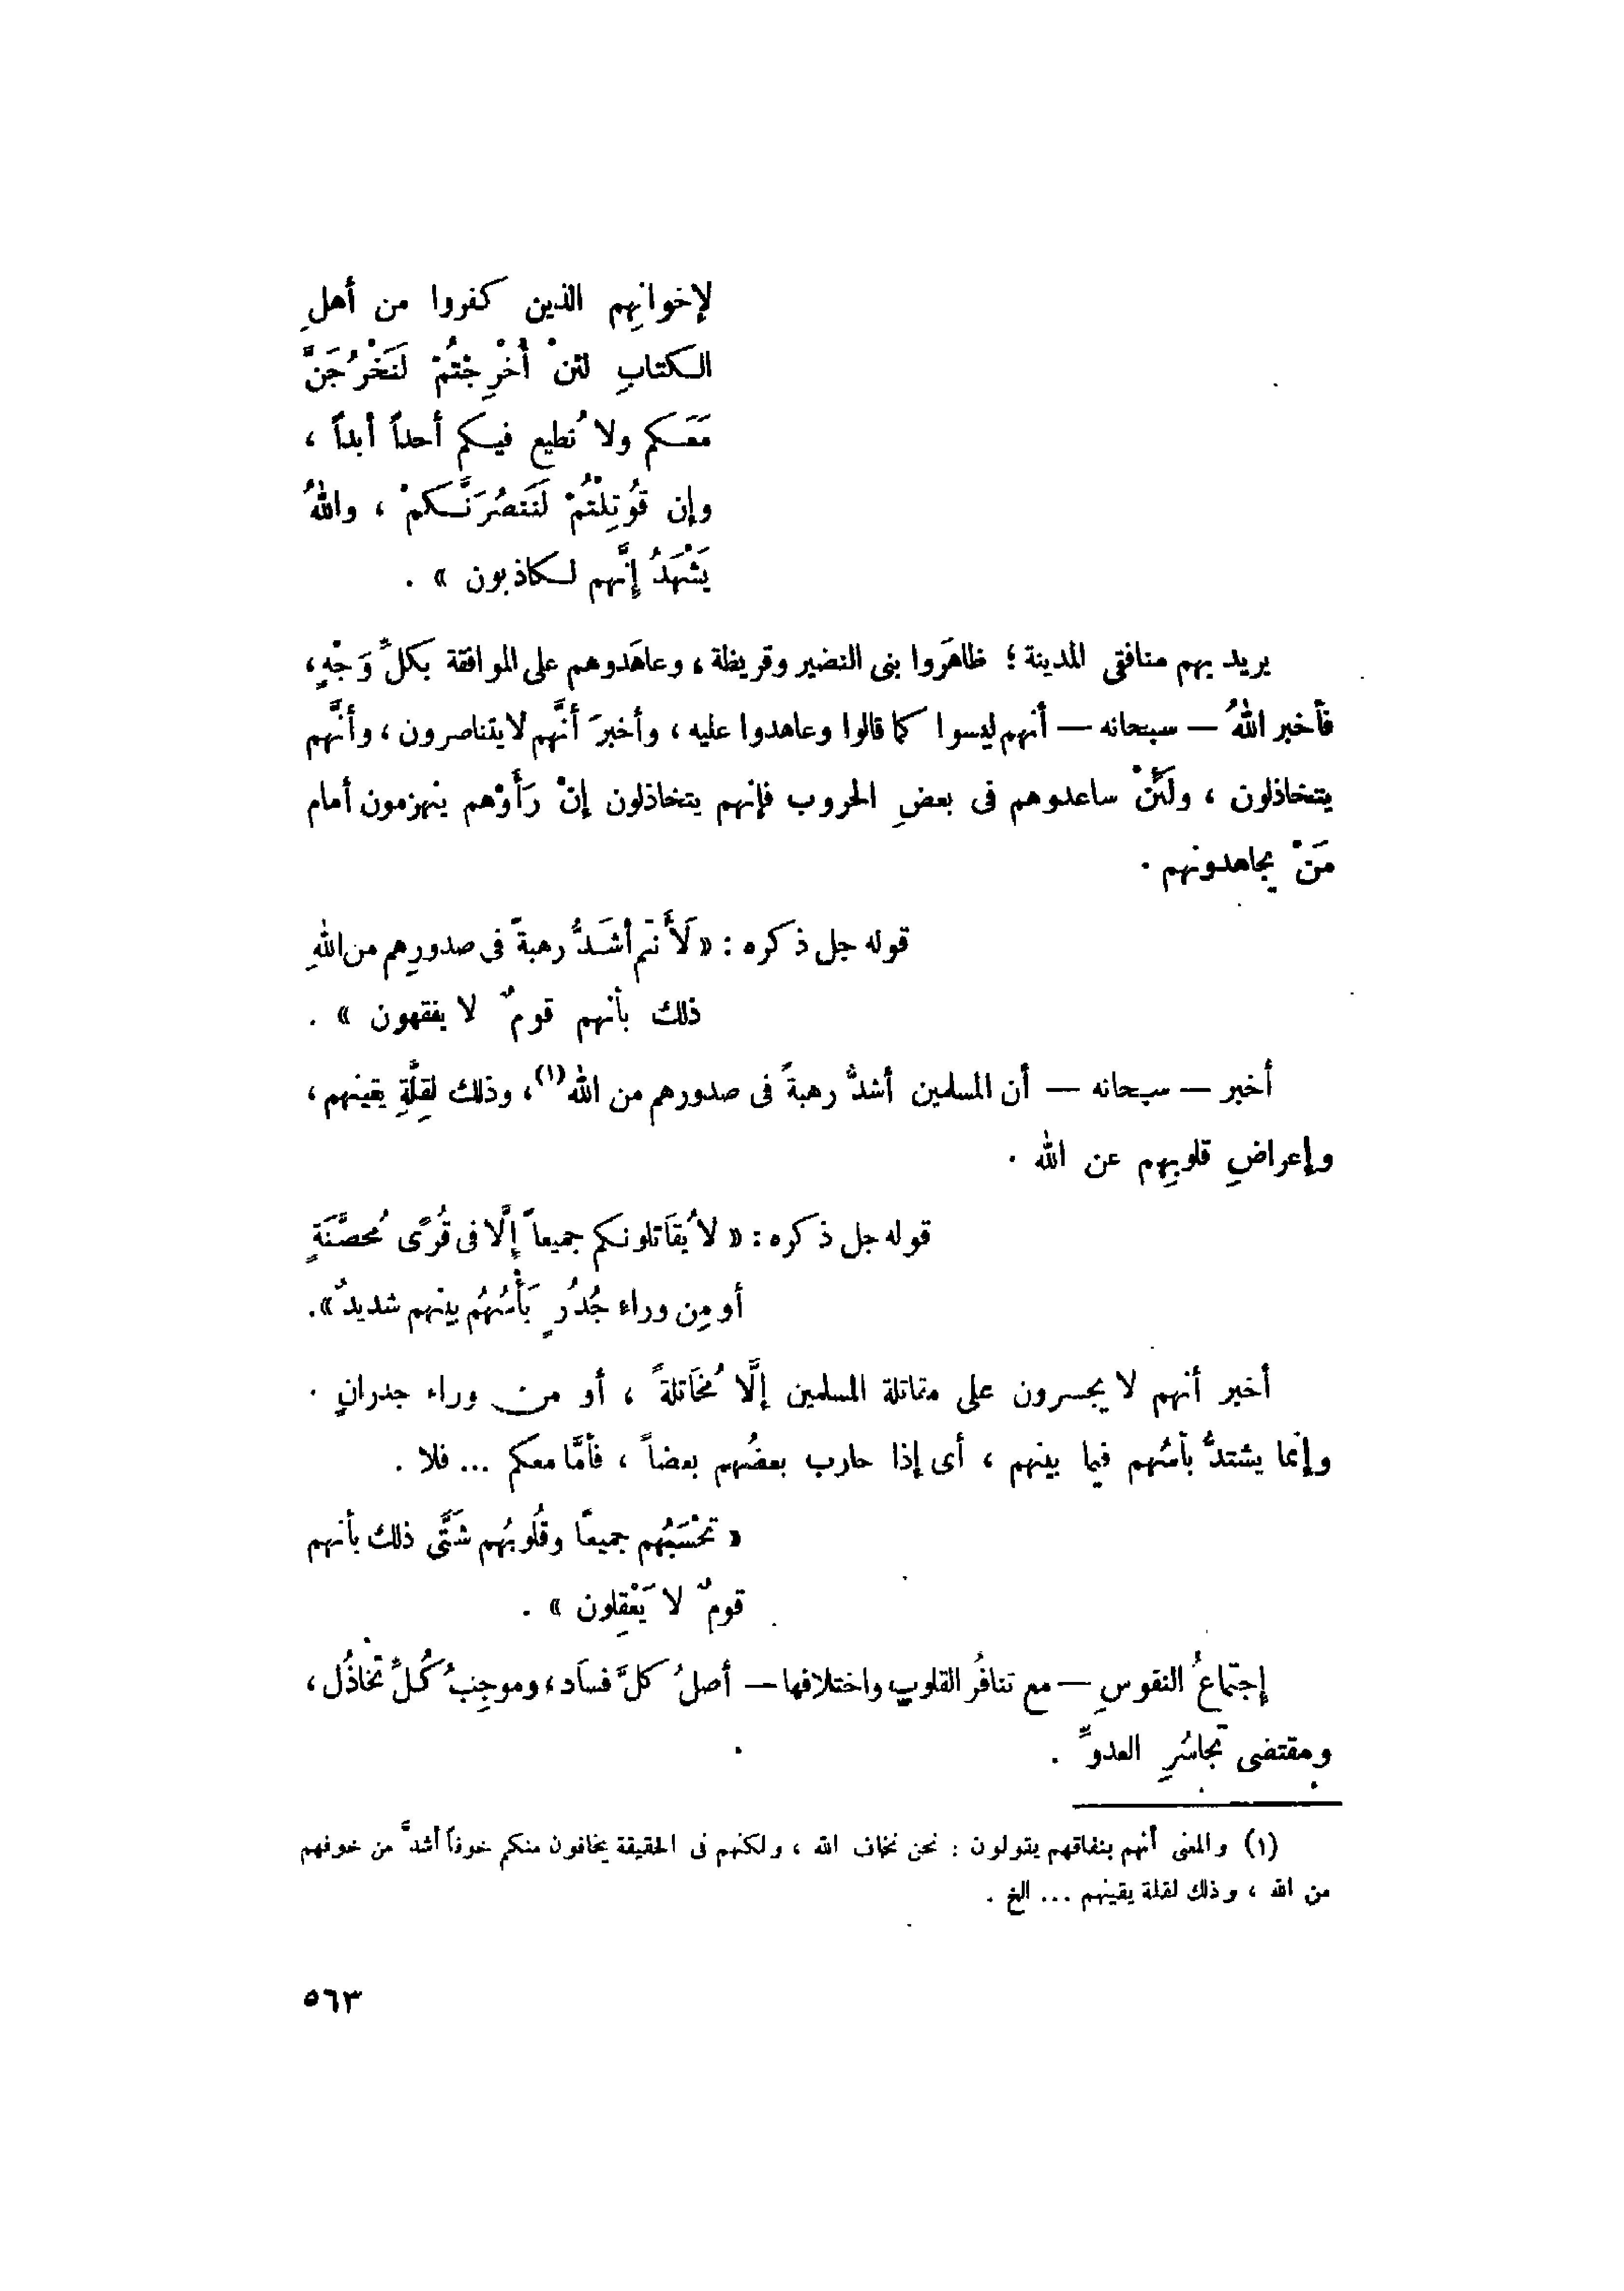 لإخوانِهم الذين كفروا من أهلِ
الكتابِ لئنْ أُخْرِجْتُمْ لَنَخْرُجَنَّ
مَعَكم ولا نُطيع فيكم أحداً أبداً ،
وإن قُوتِلْتُمْ لَنَنصُرَنَّكمْ ، واللهُ
يَشْهَدُ إِنَّهم لكاذبون » .
يريد بهم منافقى المدينة ؛ ظاهَروا بنى النضير وقريظة ، وعاهَدوهم على الموافقة بكلِّ وَجْهٍ ،
فأخبر اللهُ — سبحانه — أنهم ليسوا كما قالوا وعاهدوا عليه ، وأخبرَ أنَّهم لا يتناصرون ، وأنَّهم
يتخاذلون ، ولَئِنْ ساعدوهم فى بعضِ الحروب فإنهم يتخاذلون إنْ رَأَوْهم ينهزمون أمام
مَنْ يجاهدونهم .
قوله جل ذكره : « لَأَنتم أشَدُّ رهبةً فى صدورِهم من اللهِ
ذلك بأنهم قومٌ لا يفقهون » .
أخبر — سبحانه — أن المسلمين أشدُّ رهبةً فى صدورهم من الله (١) ، وذلك لقِلَّةِ يقينهم ،
وإعراضِ قلوبِهم عن الله .
قوله جل ذكره : « لا يُقَاتلونكم جميعاً إِلَّا فى قُرًى مُحصَّنَةٍ
أو مِن وراء جُدُرٍ بَأْسُهُم بينهم شديدٌ » .
أخبر أنهم لا يجسرون على مقاتلة المسلمين إلَّا مُخَاتلةً ، أو من وراء جدرانٍ .
وإنما يشتدُّ بأسُهم فيما بينهم ، أى إذا حارب بعضُهم بعضاً ، فأمَّا معكم ... فلا .
« تَحْسَبُهم جميعًا وقُلوبُهم شَتَّى ذلك بأنهم
قومٌ لا يَعْقِلون » .
إجتماعُ النفوسِ — مع تنافُرِ القلوبِ واختلافها — أصلُ كلِّ فساد ، وموجِبُ كُلِّ تَخاذُل ،
ومقتضى تَجاسُرِ العدوِّ .
(١) والمعنى أنهم بنفاقهم يقولون : نحن نخاف الله ، ولكنهم فى الحقيقة يخافون منكم خوفاً أشدَّ من خوفهم
من الله ، وذلك لقلة يقينهم ... الخ .
٥٦٣